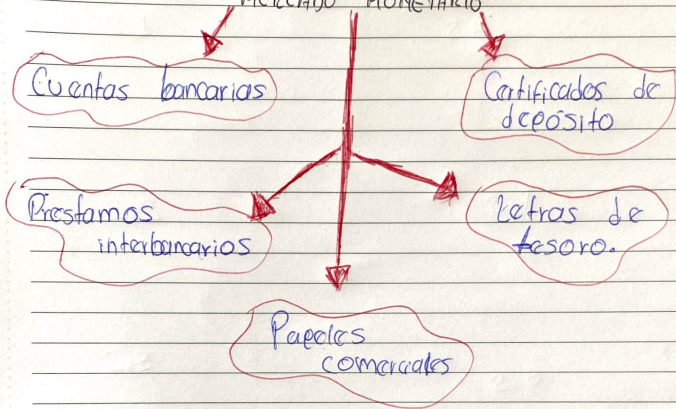 MERCADO MONETARIO
Cuentas bancarias
Certificados de
depósito
Prestamos
interbancarios
Letras de
tesoro.
Papeles
comerciales